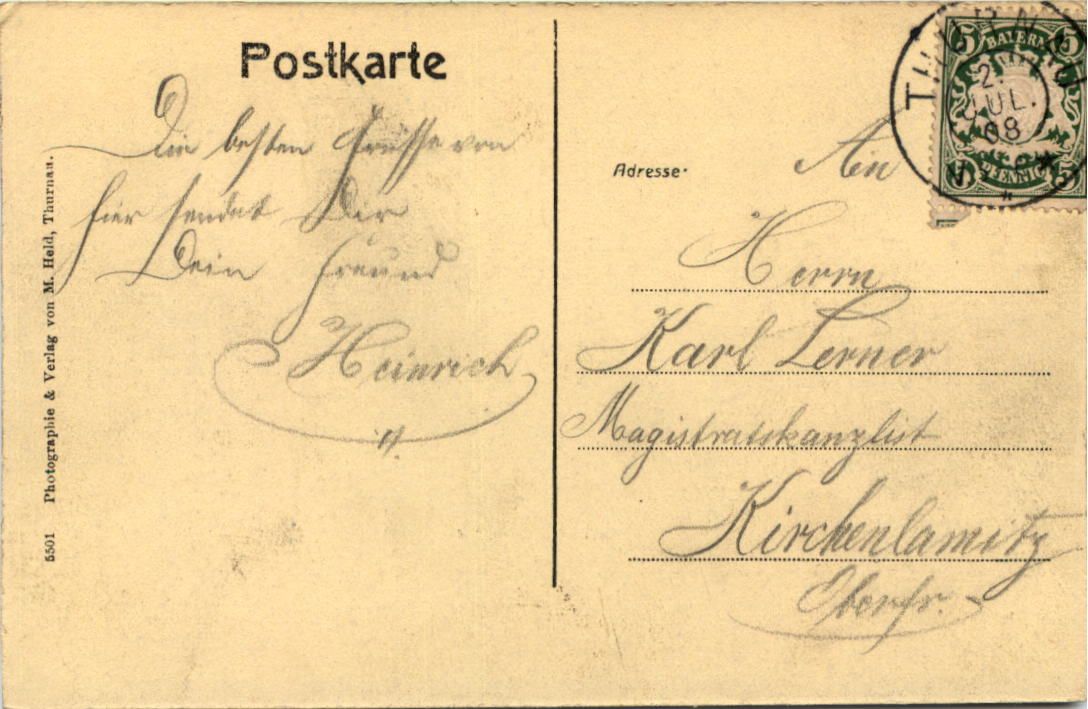 Postkarte
Die besten Grüsse von
hier sendet Dir
Dein Freund
Heinrich
5501 Photographie & Verlag von M. Held, Thurnau.
THURNAU
2.
JUL.
08
5 BAYERN 5
5 PFENNIG 5
Adresse·
An
Herrn
Karl Lerner
Magistratskanzlist
Kirchenlamitz
Oberfr.